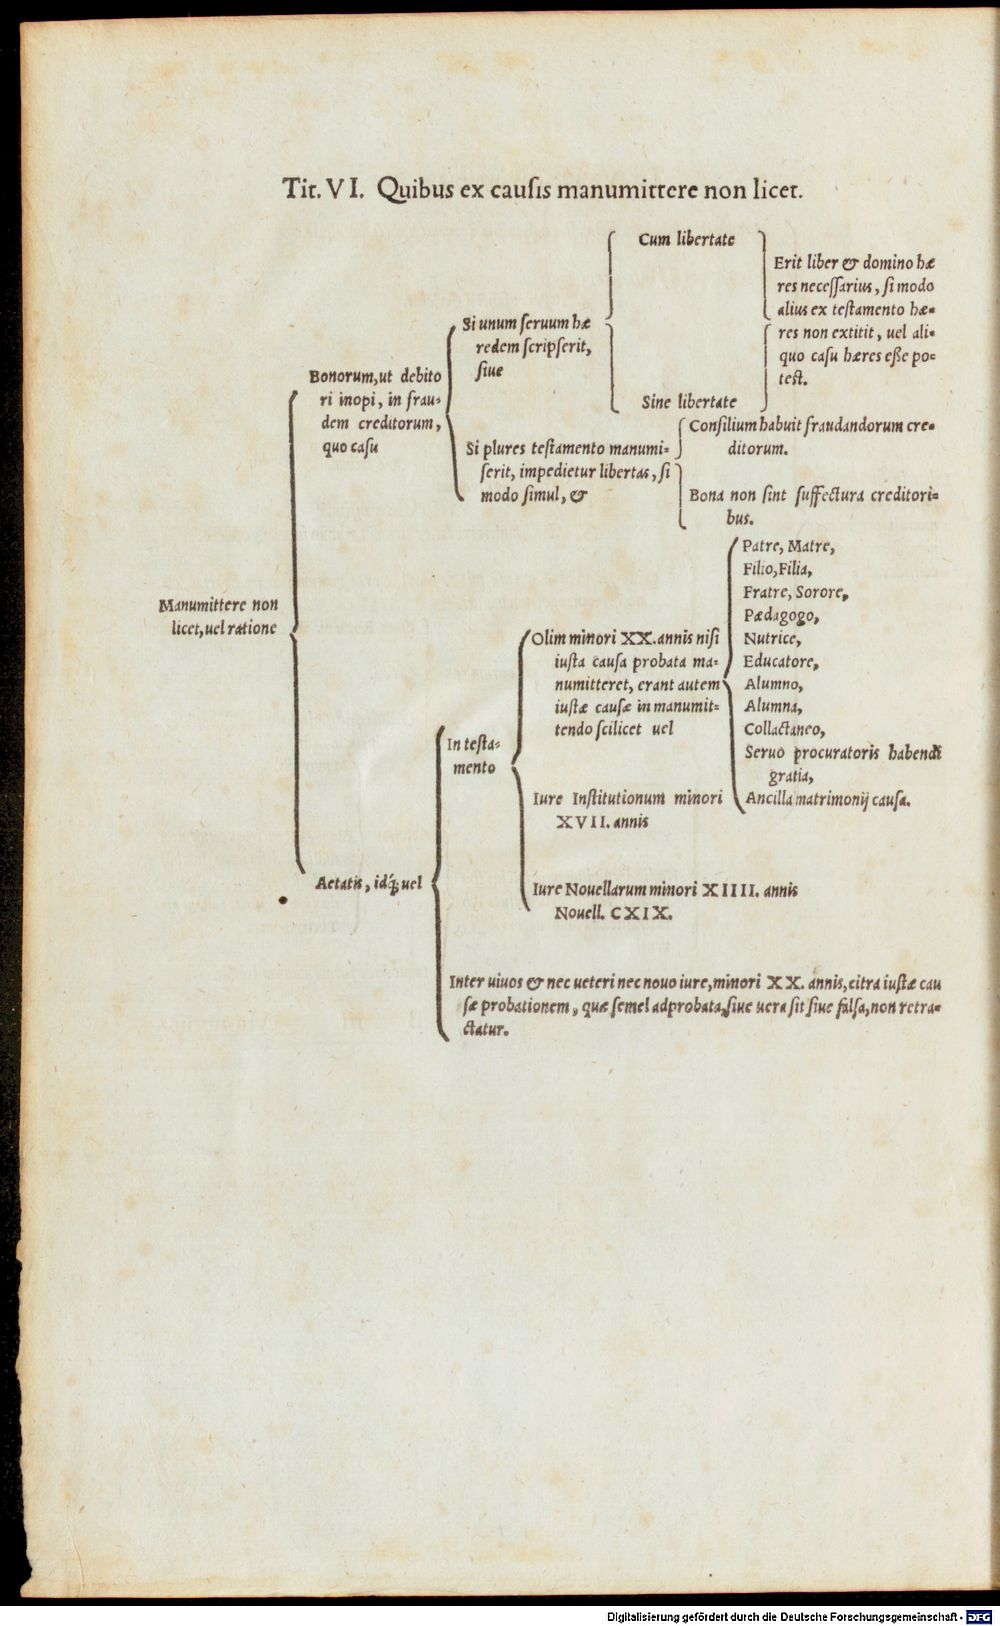 Tit. VI. Quibus ex causis manumittere non licet.
Manumittere non
licet, uel ratione
Bonorum, ut debito
ri inopi, in frau-
dem creditorum,
quo casu
Si unum seruum hæ
redem scripserit,
siue
Cum libertate
Sine libertate
Erit liber & domino hæ
res necessarius, si modo
alius ex testamento hæ-
res non extitit, uel ali-
quo casu hæres eße po-
test.
Si plures testamento manumi-
serit, impedietur libertas, si
modo simul, &
Consilium habuit fraudandorum cre-
ditorum.
Bona non sint suffectura creditori-
bus.
Aetatis, idq́; uel
In testa-
mento
Olim minori XX. annis nisi
iusta causa probata ma-
numitteret, erant autem
iustæ causæ in manumit-
tendo scilicet uel
Patre, Matre,
Filio, Filia,
Fratre, Sorore,
Pædagogo,
Nutrice,
Educatore,
Alumno,
Alumna,
Collactaneo,
Seruo procuratoris habendi
gratia,
Ancilla matrimonij causa.
Iure Institutionum minori
XVII. annis
Iure Nouellarum minori XIIII. annis
Nouell. CXIX.
Inter uiuos & nec ueteri nec nouo iure, minori XX. annis, citra iustæ cau
sæ probationem, quæ semel adprobata, siue uera sit siue falsa, non retra-
ctatur.
Digitalisierung gefördert durch die Deutsche Forschungsgemeinschaft - DFG